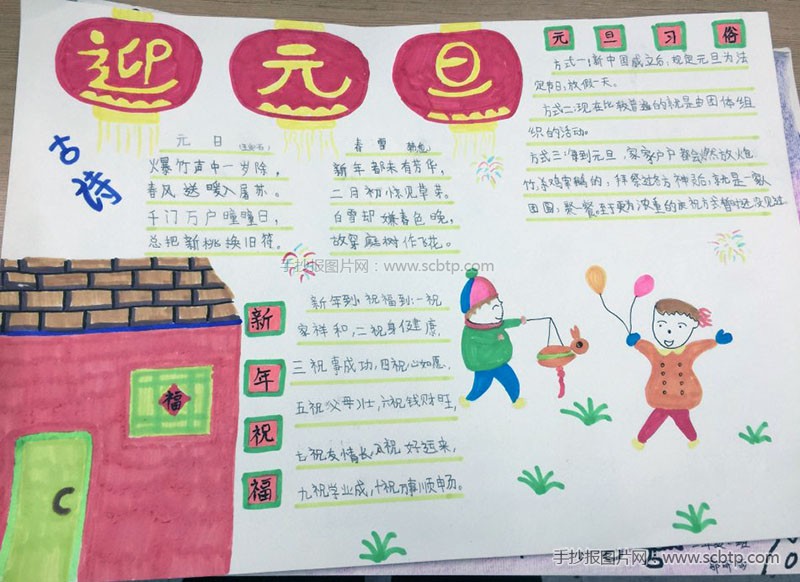 迎元旦
元旦习俗
方式一:新中国成立后,规定元旦为法
定节日,放假一天。
方式二:现在比较普遍的就是由团体组
织的活动。
方式三:每到元旦,家家户户都会燃放炮
竹,杀鸡宰鹅的,拜祭过各方神灵后,就是一家
团圆,聚餐。至于更为浓重的庆祝方式暂时还没见过
古诗
元日
爆竹声中一岁除,
春风送暖入屠苏。
千门万户瞳瞳日,
总把新桃换旧符。
春雪 韩愈
新年都未有芳华,
二月初惊见草芽。
白雪却嫌春色晚,
故穿庭树作飞花。
手抄报图片网:www.scbtp.com
新年祝福
新年到,祝福到:一祝
家祥和,二祝身健康,
三祝事成功,四祝心如愿,
五祝父母,六祝钱财旺,
七祝友情长,八祝好运来,
九祝学业成,十祝万事顺申场。
福
手抄报图片网:www.scbtp.com